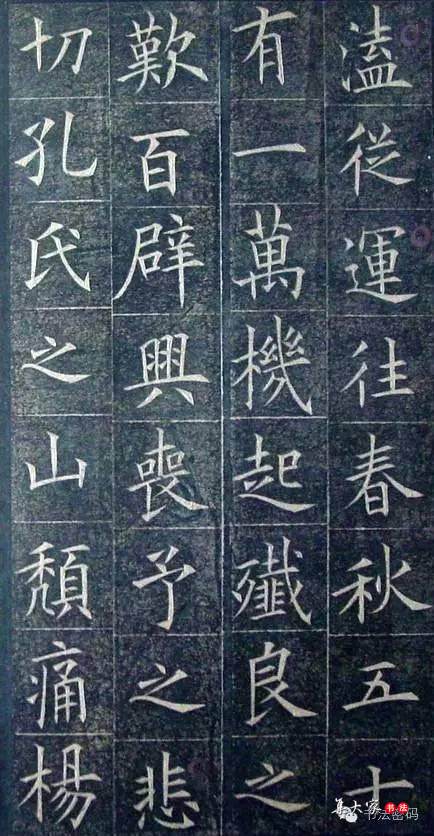 溘從運往春秋五十
有一萬機起殲良之
歎百辟興喪予之悲
切孔氏之山頹痛楊
集大家书法
书法密码